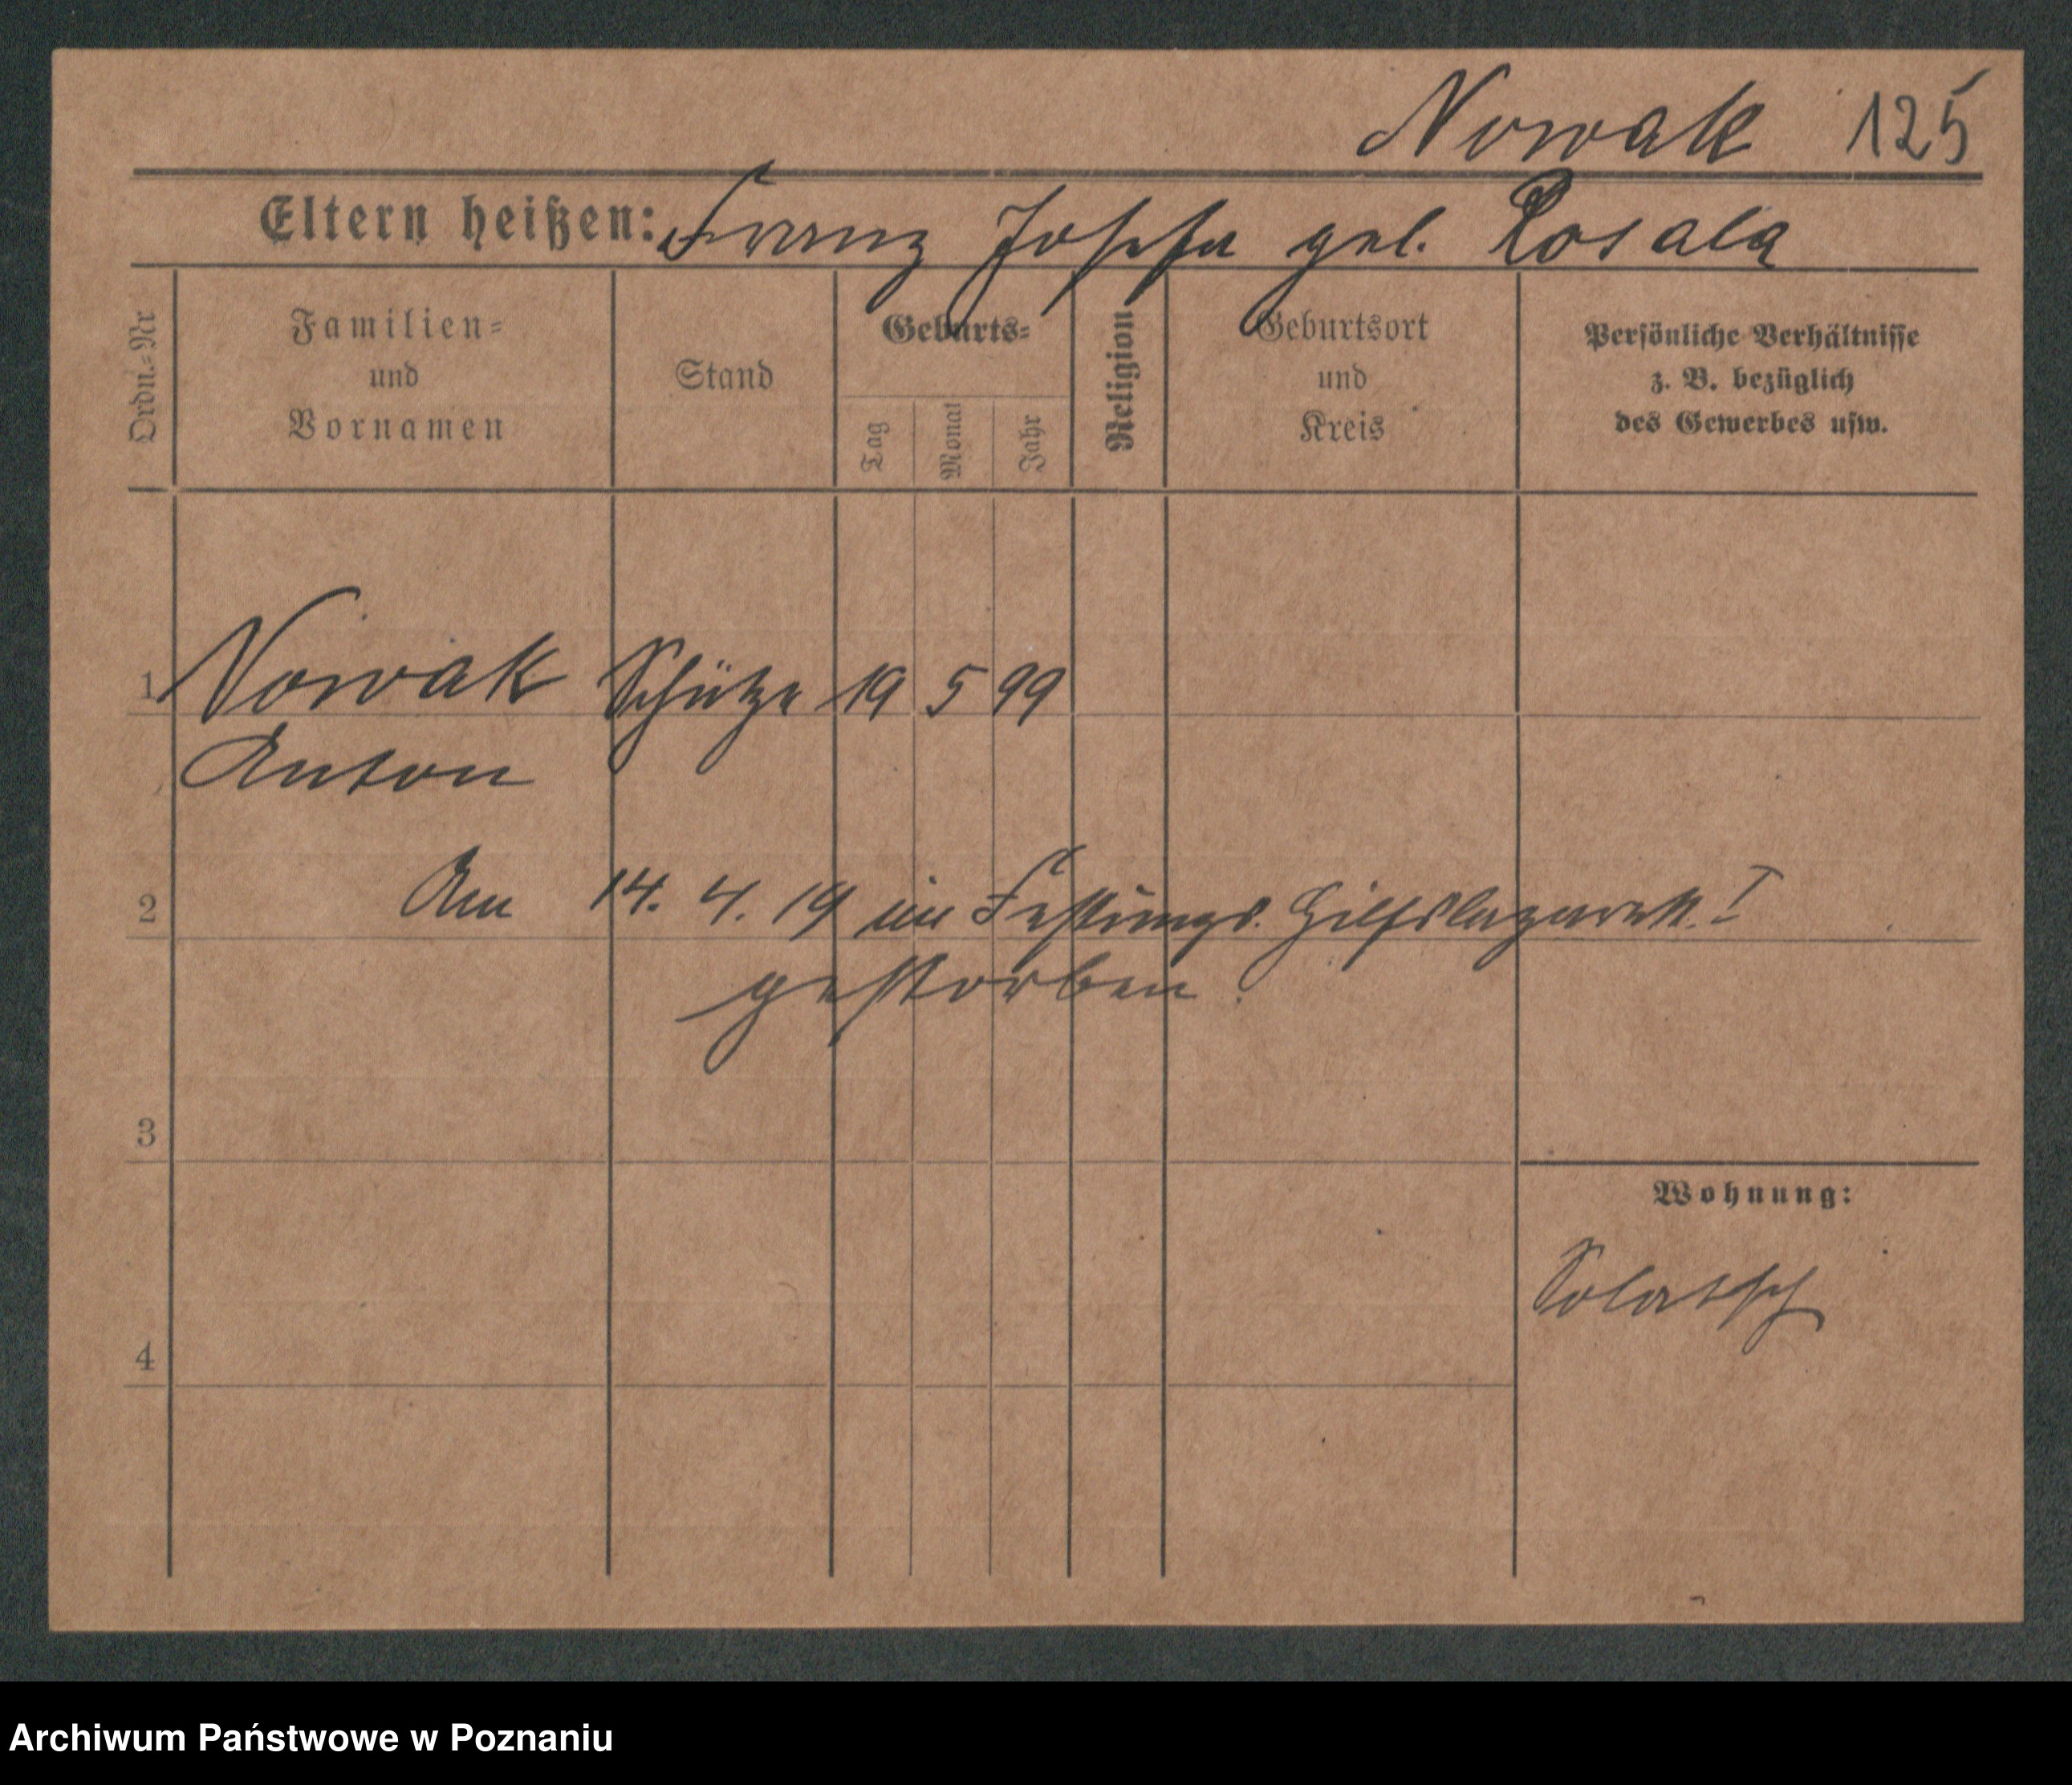 Nowak 125
Eltern heißen: Franz Josefa geb. Rosala
Ordn.-Nr
Familien-
und
Vornamen
Stand
Geburts-
Tag
Monat
Jahr
Religion
Geburtsort
und
Kreis
Persönliche Verhältnisse
z. B. bezüglich
des Gewerbes usw.
1 Nowak Schütze 19 5 99
Anton
2 Am 14. 4. 19 im Festungs. Hilfslazarett. I
gestorben.
3
Wohnung:
Solatsch
4
Archiwum Państwowe w Poznaniu